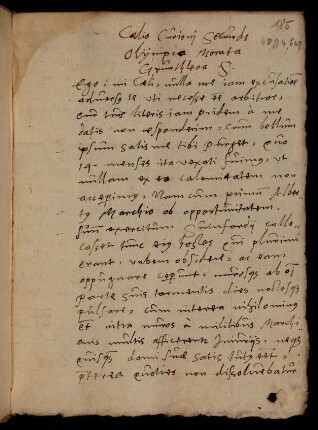 185
Cælio Curioni Secundo
Olympia Morata
Grunthlera S.
Ego, mi Cæli, nulla me iam excusatione
adversus te uti necesse esse arbitror,
cur tuis literis iam pridem à me
datis non responderim, cum bellum
ipsum satis me tibi purget, quo
14 menses ita vexati fuimus, ut
nullam ex eo calamitatem non
acceperimus. Nam cum primum Alber-
tus Marchio ob opportunitatem
suum exercitum Suinfordij collo-
casset tunc eius hostes qui plurimi
erant, urbem obsidere, ac eam
oppugnare cœperunt, murosque ab omni
parte suis tormentis dies noctesque
pulsare, cum interea nihilominus
et intra muros à militibus Marchi-
anis multis afficeremur iniurijs, neque
quisquam domi suæ satis tutus esset,
præterea quoties non dissolvebatur